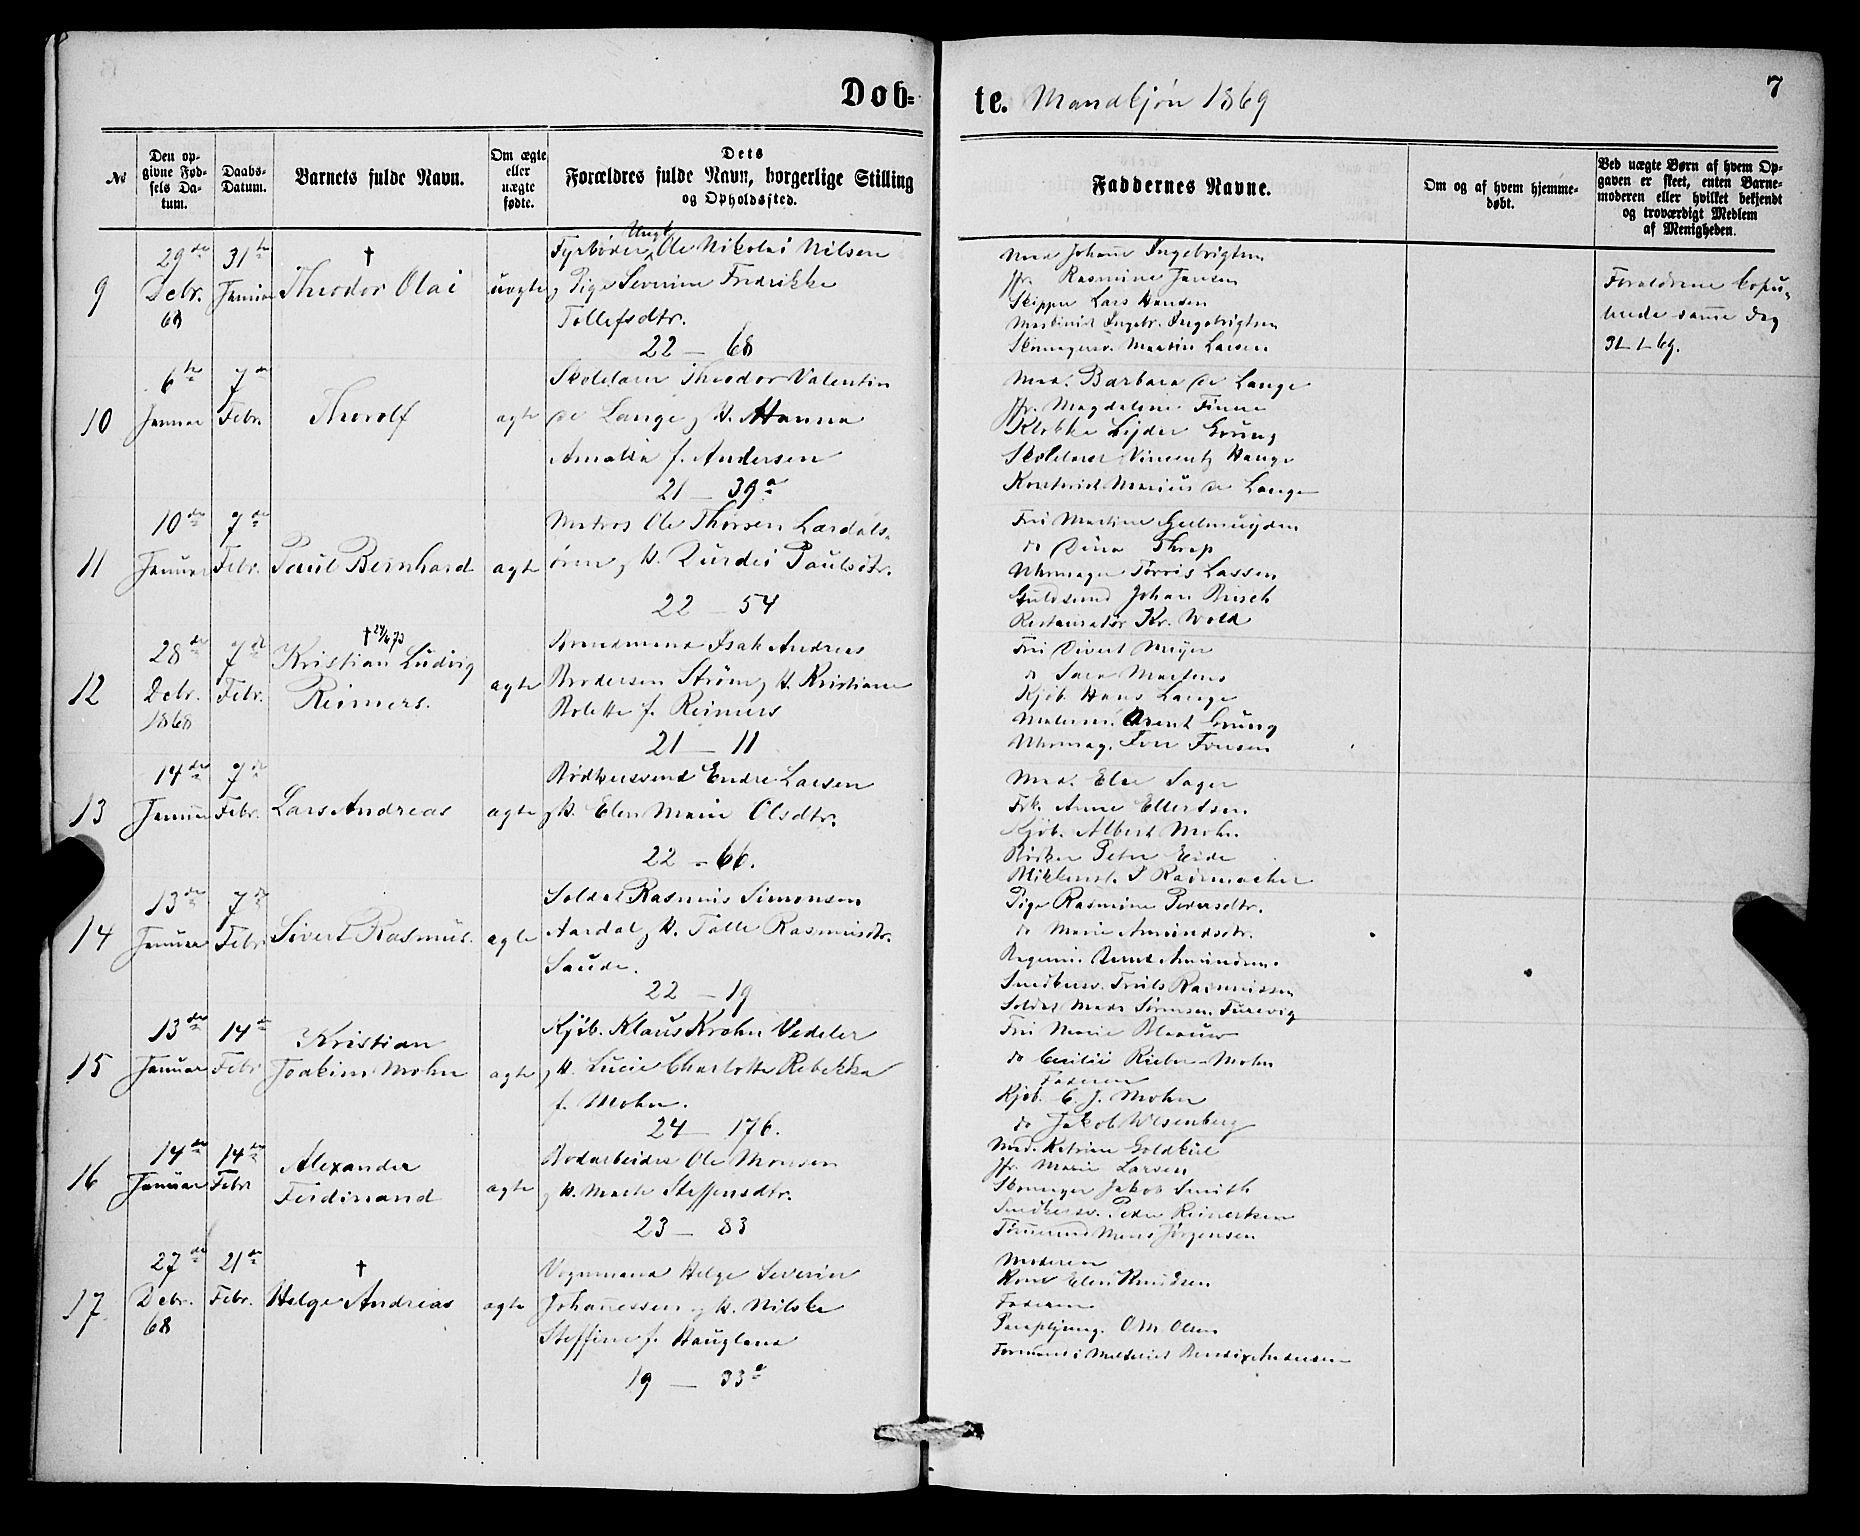 Døb=
te. Mandkjøn 1869
7
No
Den op-
givne Fød-
sels Da-
tum.
Daabs-
Datum.
Barnets fulde Navn.
Om ægte
eller
uægte
fødte.
Dets
Forældres fulde Navn, borgerlige Stilling
og Opholdssted.
Faddernes Navne.
Om og af hvem hjemme-
døbt.
Ved uægte Børn af hvem Op-
gaven er skeet, enten Barne-
moderen eller hvilket bekjendt
og troværdigt Medlem
af Menigheden.
9
29de
Debr.
68
31te
Januar
†
Theodor Olai
uægte
Ungk
Fyrbøder Ole Nikolai Nilsen
og Pige Severine Fredrikke
Tollefsdtr.
22 – 68
Mad Johanne Ingebrigtsen
Jfr. Rasmine Jansen
Skipper Lars Hansen
Ingebr. Ingebrigtsen
Martin Larsen
Forældrene Copu-
lerede samme Dag
31-1-69.
10
6te
Januar
7de
Febr.
Thorolf
ægte
Skolelærer Theodor Valentin
de Lange og H. Hanna
Amalia f. Andersen
21 – 39a
Mad. Barbara de Lange
Jfr. Magdalene Finne
Klokker Lyder Grung
Skolelærer Vincent Hauge
Marius de Lange
11
10de
Januar
7de
Febr.
Paul Bernhard
ægte
Matros Ole Thorsen Lærdals-
øren og H. Durdei Paulsdtr.
22 – 54
Frü Martine Geelmuyden
do Dina Thrap
Uhrmager Torris Lassen
Guldsmed Johan Busch
Restauratør Kr. Wold
12
28de
Debr.
1868
7de
Febr.
† 24/6 73
Kristian Ludvig
Reimers.
ægte
Brandmand Isak Andreas
Brodersen Strøm og H. Kristiane
Bolette f. Reimers
21 – 11
Frü Divert Meyer
do Sara Martens
Kjøb. Hans Lange
Malerm. Arent Grung
Uhrmag. Iver Iversen
13
14de
Januar
7de
Febr.
Lars Andreas
ægte
Bødkersvend Endre Larsen
og H. Elen Marie Olsdtr.
22 – 66.
Mad. Else Sager
Frk. Anne Ellertsen
Kjøb. Albert Mohn
Bødker Peter Eide
P Rademacher
14
13de
Januar
7de
Febr
Sivert Rasmus.
ægte
Soldat Rasmus Simonsen
Aardal og H. Talle Rasmusdtr.
Saude.
22 – 19
Pige Rasmine Pedersdtr.
do Marie Amundsdtr.
Bernt Amundsen
Smedkersv. Truls Rasmussen
Soldat Mads Sørensen Furevig
15
13de
Januar
14de
Febr
Kristian
Joakim Mohn
ægte
Kjøb. Klaus Krohn Vedeler
og H. Lucie Charlotte Rebekka
f. Mohn.
24 – 176.
Frü Marie Blaauw
do Cecilie Rieber Mohn
Faderen
Kjøb. C. J. Mohn
do Jakob Wesenberg
16
14de
Januar
14de
Febr
Alexander
Ferdinand
ægte
Bodarbeider Ole Monsen
og H. Marte Steffensdtr.
23 – 83
Mad. Katrine Goldkül
Jfr. Marie Larsen
Skomager Jakob Smith
Peder Reinertsen
Mons Jørgensen
17.
27de
Debr.
68
21de
Febr.
†
Helge Andreas
ægte
Vognmand Helge Severin
Johannessen og H. Nilske
Steffine f. Haugland
19 – 33a
Moderen
Kone Elen Knudsen
Faderen
O. M. Olsen
Formand i Andersen